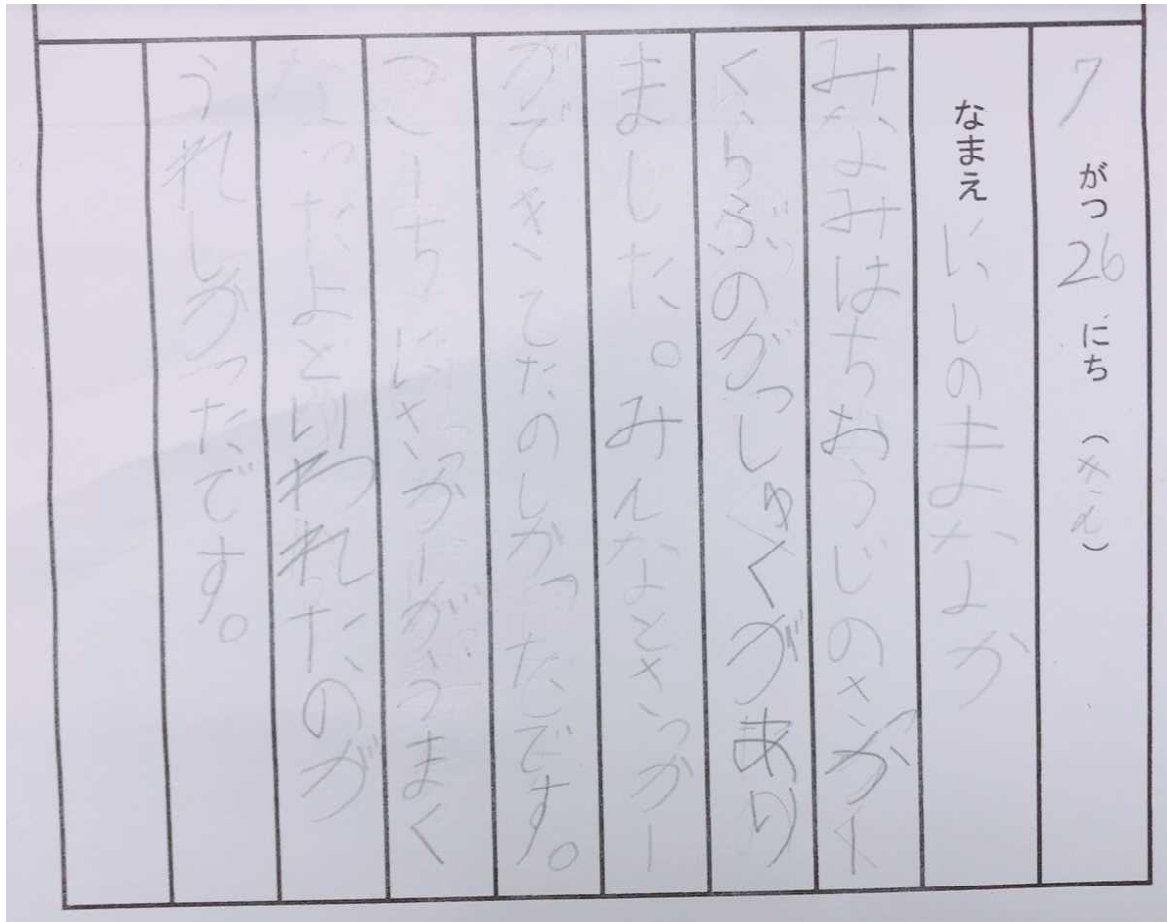 7 がつ 26 にち (きん)
なまえ にしのまなか
みなみはちおうじのさっかー
くらぶのがっしゅくがあり
ました。みんなとさっかー
ができてたのしかったです。
こーちにさっかーがうまく
なったよといわれたのが
うれしかったです。